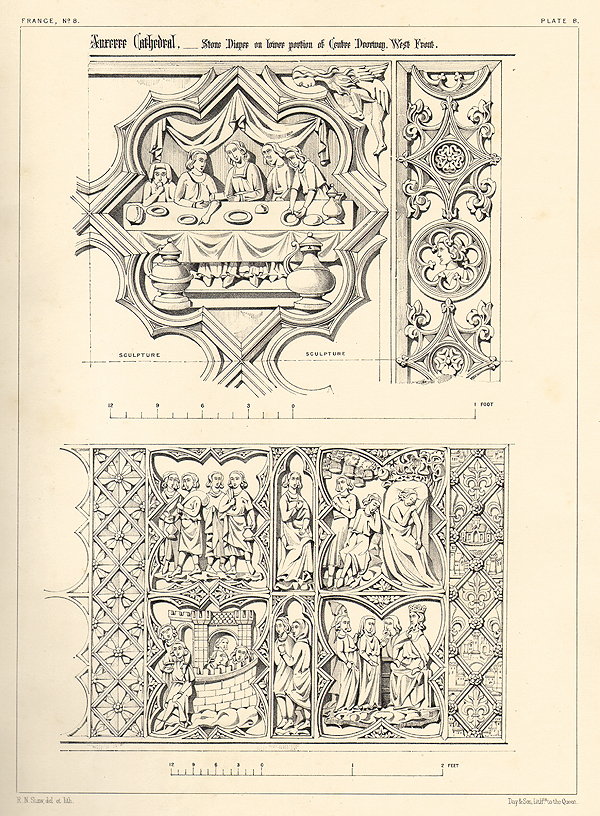 FRANCE, No 8.
PLATE 8.
Auxerre Cathedral. __ Stone Diaper on lower portion of Centre Doorway. West Front.
SCULPTURE SCULPTURE
12 9 6 3 0 1 FOOT
12 9 6 3 0 1 2 FEET
R. N. Shaw, del. et lith.
Day & Son, Lithrs to the Queen.